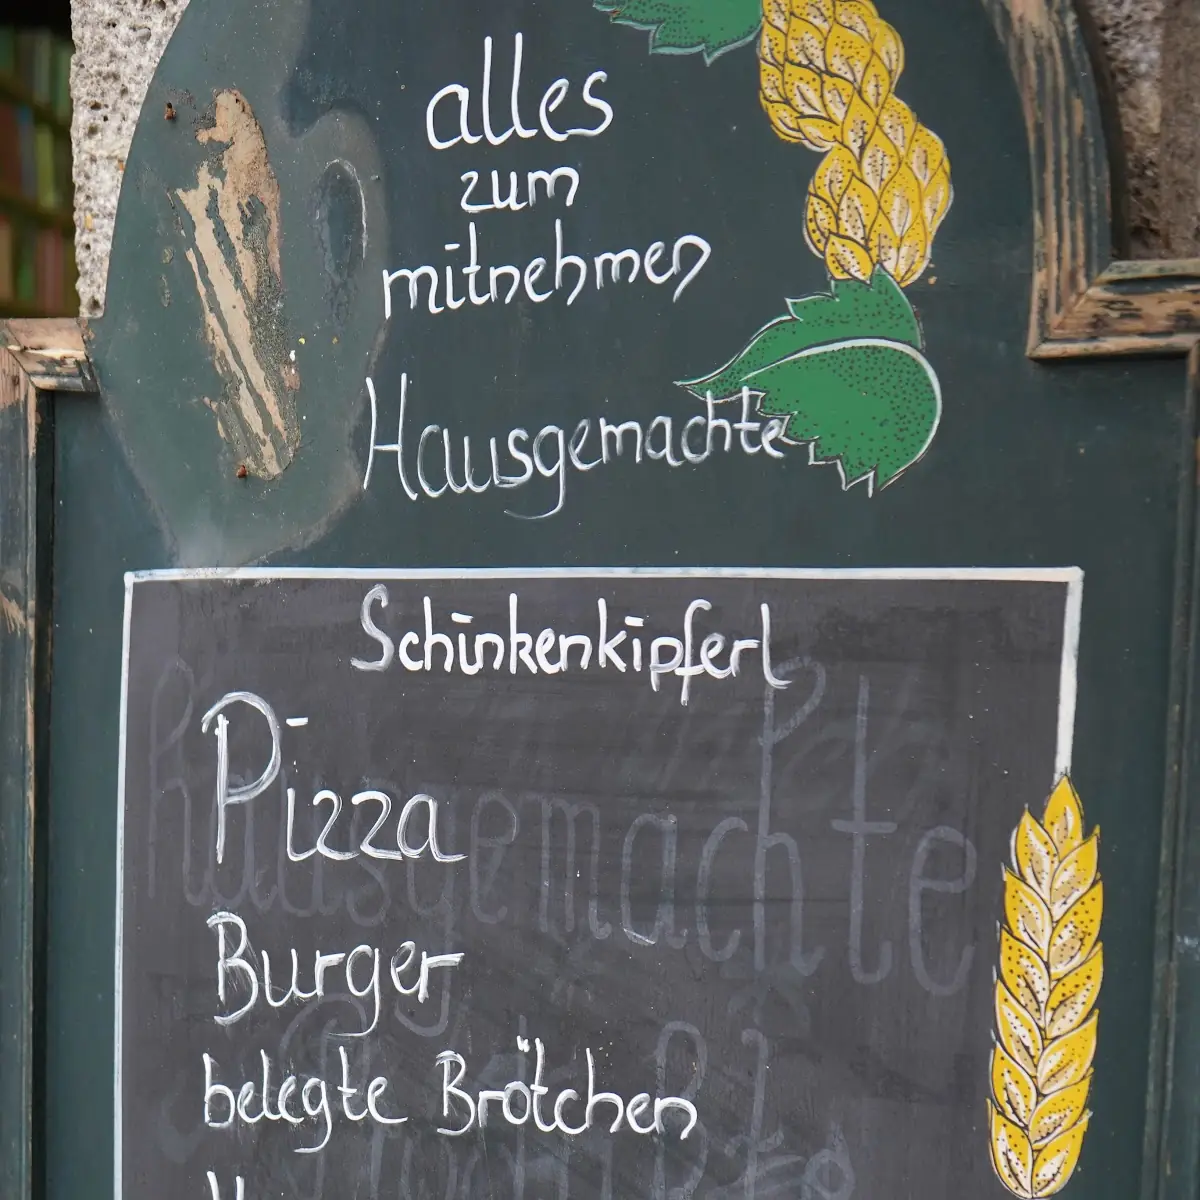 alles
zum
mitnehmen
Hausgemachte
Schinkenkipferl
Pizza
Burger
belegte Brötchen